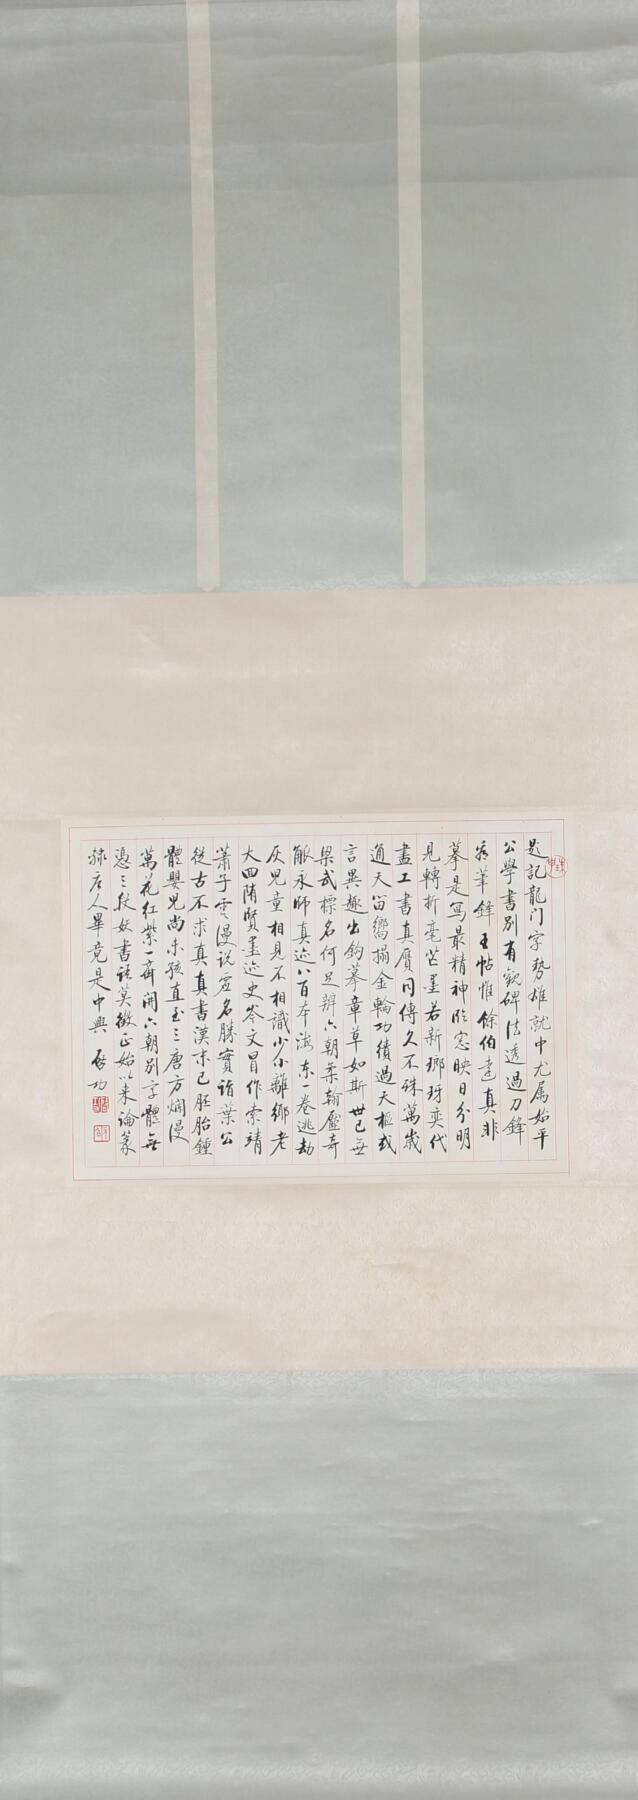 题記龍门字勢雄就中尤属始平
公學書别有觀碑法透過刀鋒
看筆鋒 王帖惟餘伯遠真非
摹是寫最精神臨窓映日分明
見轉折毫芒墨若新 瑯玡奕代
盡工書真贋同傳久不殊萬歲
通天留響搨金輪功績過天樞 或
言異趣出鉤摹章草如斯世已無
梁武標名何足辨六朝柔翰壓奇
觚 永師真迹八百本海東一卷逃劫
灰兒童相見不相識少小離鄉老
大回 隋賢墨迹史岑文冒作索靖
蕭子雲漫説虛名勝實詣葉公
從古不求真 真書漢末已胚胎鍾
體嬰兒尚未孩直至三唐方爛漫
萬花红紫一齊開 六朝别字體無
憑三段妖書語莫徵正始以来論篆
隸唐人畢竟是中興 啓功